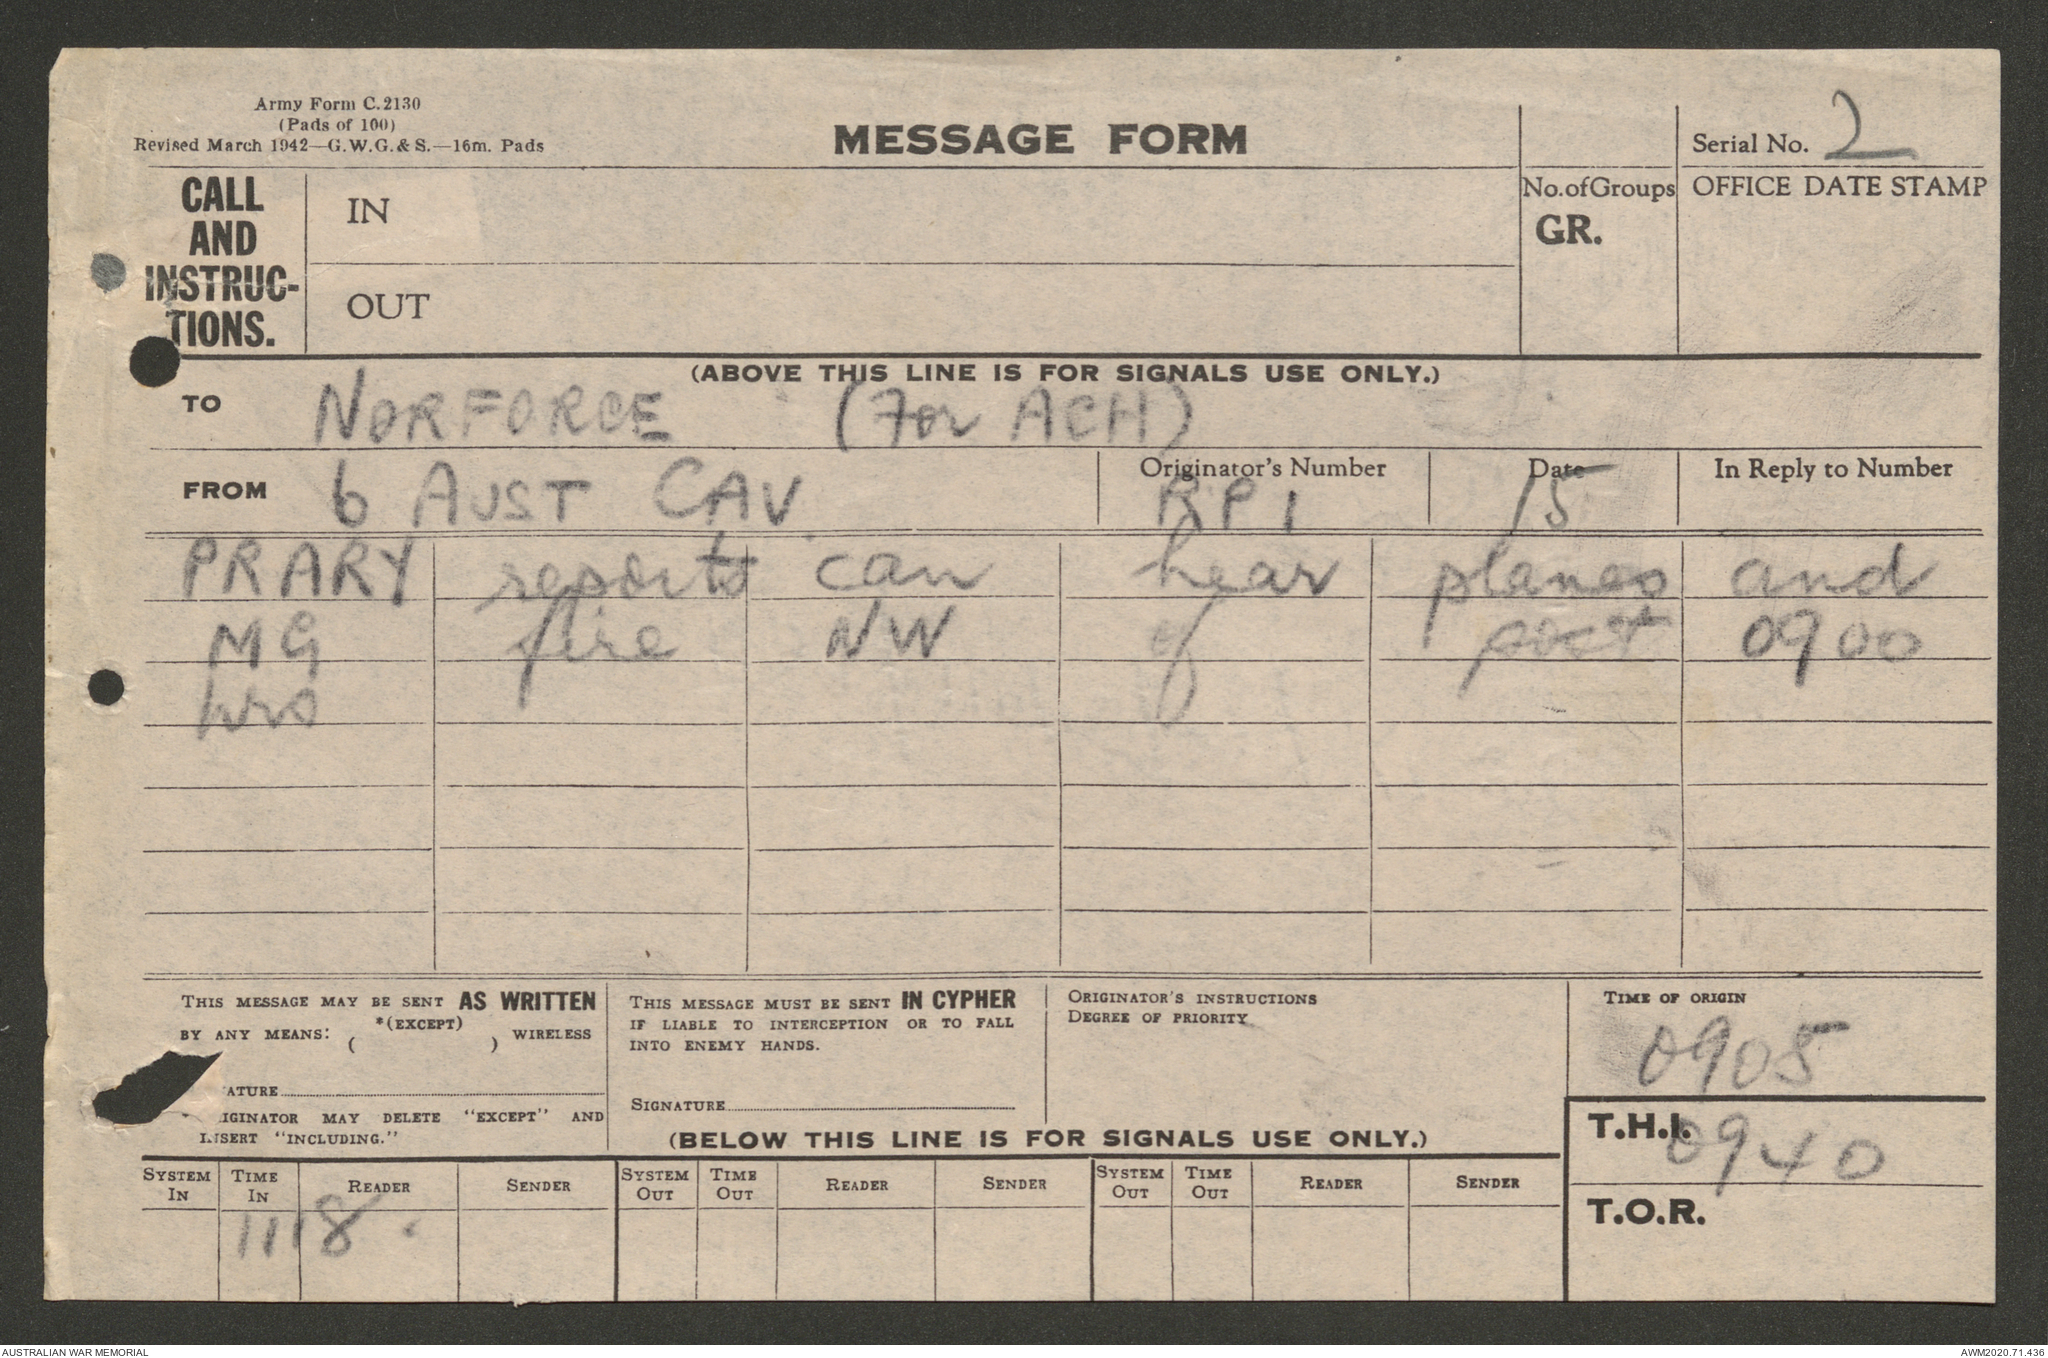 Army Form C.2130
(Pads of 100)
Revised March 1942—G.W.G.&S.—16m. Pads
MESSAGE FORM
Serial No. 2
CALL AND INSTRUC-TIONS.
IN
OUT
No. of Groups
GR.
OFFICE DATE STAMP
(ABOVE THIS LINE IS FOR SIGNALS USE ONLY.)
TO NORFORCE (For ACH)
FROM 6 AUST CAV
Originator's Number RP1
Date 15
In Reply to Number
PRARY reports can hear planes and
MG fire NW of post 0900
hrs
THIS MESSAGE MAY BE SENT AS WRITTEN
BY ANY MEANS: *(EXCEPT) ( ) WIRELESS
ATURE
IGINATOR MAY DELETE "EXCEPT" AND
INSERT "INCLUDING."
THIS MESSAGE MUST BE SENT IN CYPHER
IF LIABLE TO INTERCEPTION OR TO FALL
INTO ENEMY HANDS.
SIGNATURE
ORIGINATOR'S INSTRUCTIONS
DEGREE OF PRIORITY
TIME OF ORIGIN
0905
T.H.I. 0940
T.O.R.
(BELOW THIS LINE IS FOR SIGNALS USE ONLY.)
SYSTEM IN TIME IN READER SENDER SYSTEM OUT TIME OUT READER SENDER SYSTEM OUT TIME OUT READER SENDER
1118.
AUSTRALIAN WAR MEMORIAL
AWM2020.71.436